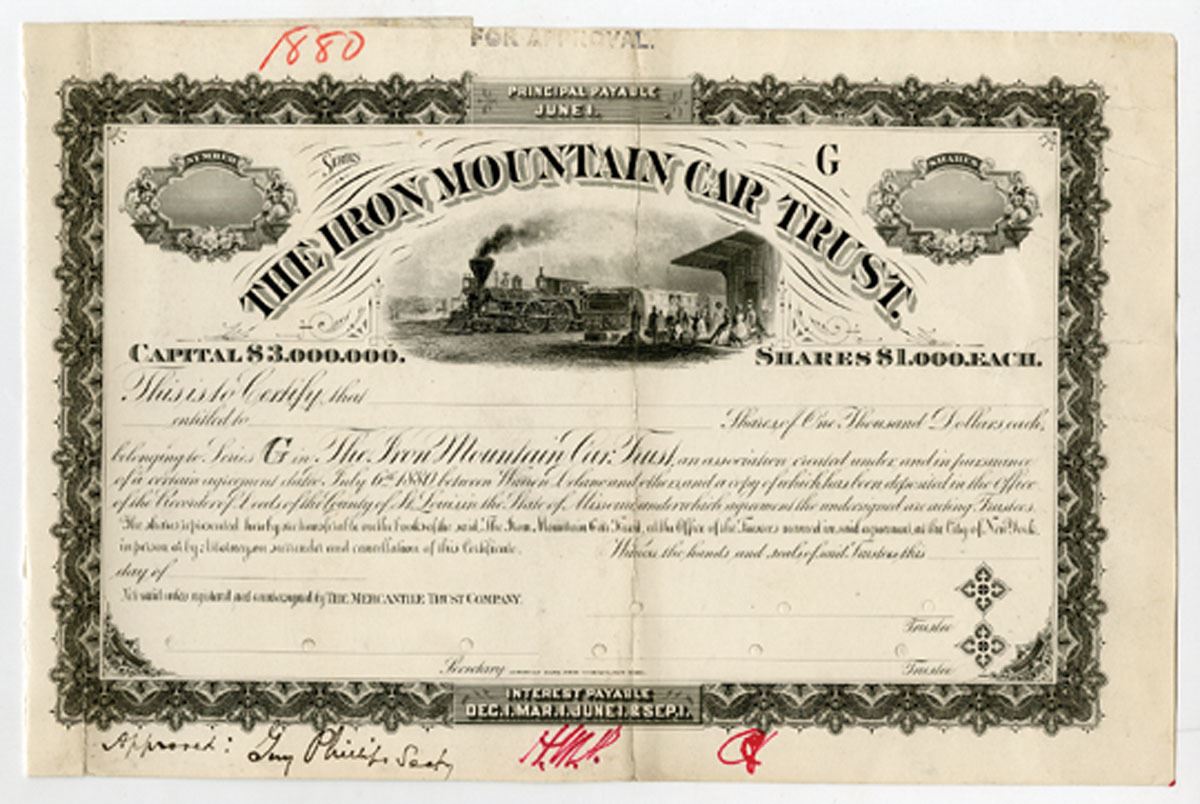 1880
FOR APPROVAL.
PRINCIPAL PAYABLE
JUNE 1.
NUMBER
SERIES
G
SHARES
THE IRON MOUNTAIN CAR TRUST.
CAPITAL $3.000.000.
SHARES $1.000. EACH.
This is to Certify, that
entitled to Shares of One Thousand Dollars each,
belonging to Series G in The Iron Mountain Car Trust, an association created under and in pursuance
of a certain agreement dated July 6th 1880 between Warren Delano and others, and a copy of which has been deposited in the Office
of the Recorder of Deeds of the County of St. Louis in the State of Missouri, under which agreement the undersigned are acting Trustees.
The shares represented hereby are transferable on the books of the said The Iron Mountain Car Trust, at the Office of the Trustees named in said agreement, at the City of New York,
in person or by Attorney, on surrender and cancellation of this Certificate. Witness the hands and seals of said Trustees this
day of
Not valid unless registered and countersigned by THE MERCANTILE TRUST COMPANY.
Trustee
Secretary Trustee
INTEREST PAYABLE
DEC. 1. MAR. 1. JUNE 1. & SEP. 1.
Approved: Guy Phillips Secty